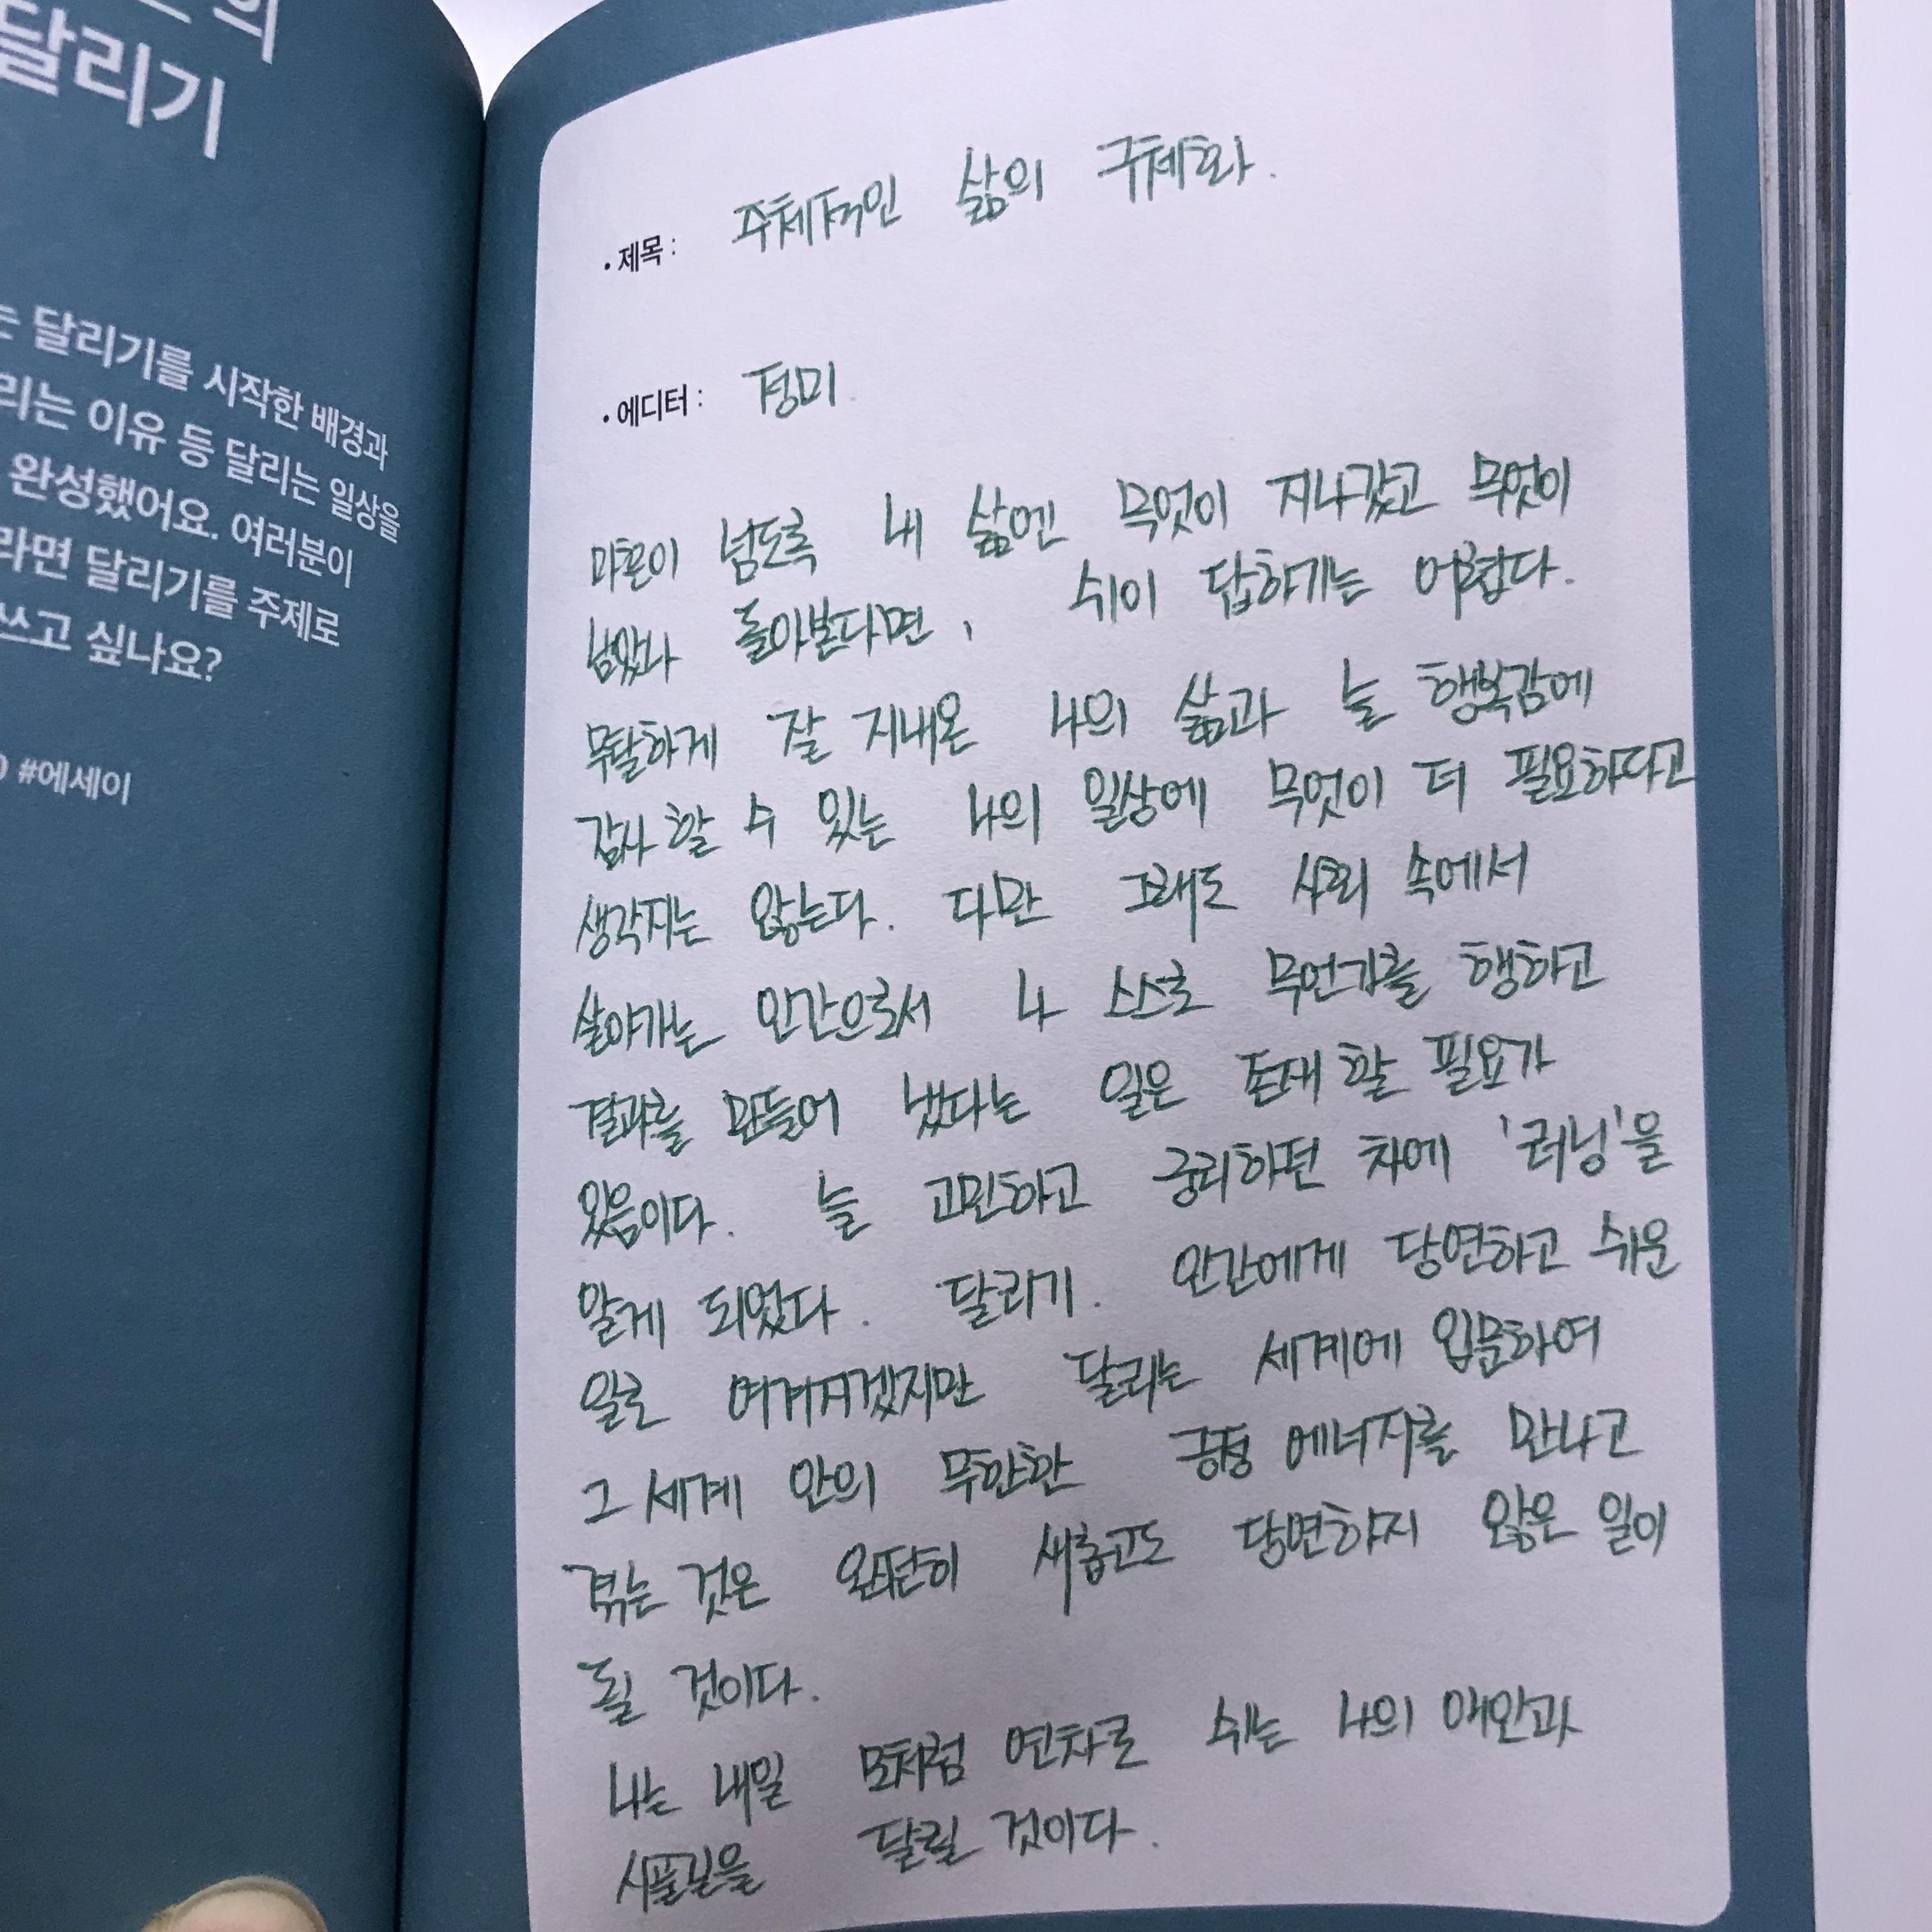 의
달리기
는 달리기를 시작한 배경과
리는 이유 등 달리는 일상을
완성했어요. 여러분이
라면 달리기를 주제로
쓰고 싶나요?
#에세이
• 제목 : 주체적인 삶의 구체화.
• 에디터 : 정미.
마흔이 넘도록 내 삶엔 무엇이 지나갔고 무엇이
남았나 돌아본다면, 쉬이 답하기는 어렵다.
무탈하게 잘 지내온 나의 삶과 늘 행복감에
감사 할 수 있는 나의 일상에 무엇이 더 필요하다고
생각지는 않는다. 다만 그래도 사회 속에서
살아가는 인간으로서 나 스스로 무언가를 행하고
결과를 만들어 냈다는 일은 존재 할 필요가
있음이다. 늘 고민하고 궁리하던 차에 '러닝'을
알게 되었다. 달리기. 인간에게 당연하고 쉬운
일로 여겨지겠지만 달리는 세계에 입문하여
그 세계 안의 무한한 긍정 에너지를 만나고
겪는 것은 완전히 새롭고도 당연하지 않은 일이
될 것이다.
나는 내일 모처럼 연차로 쉬는 나의 애인과
시골길을 달릴 것이다.